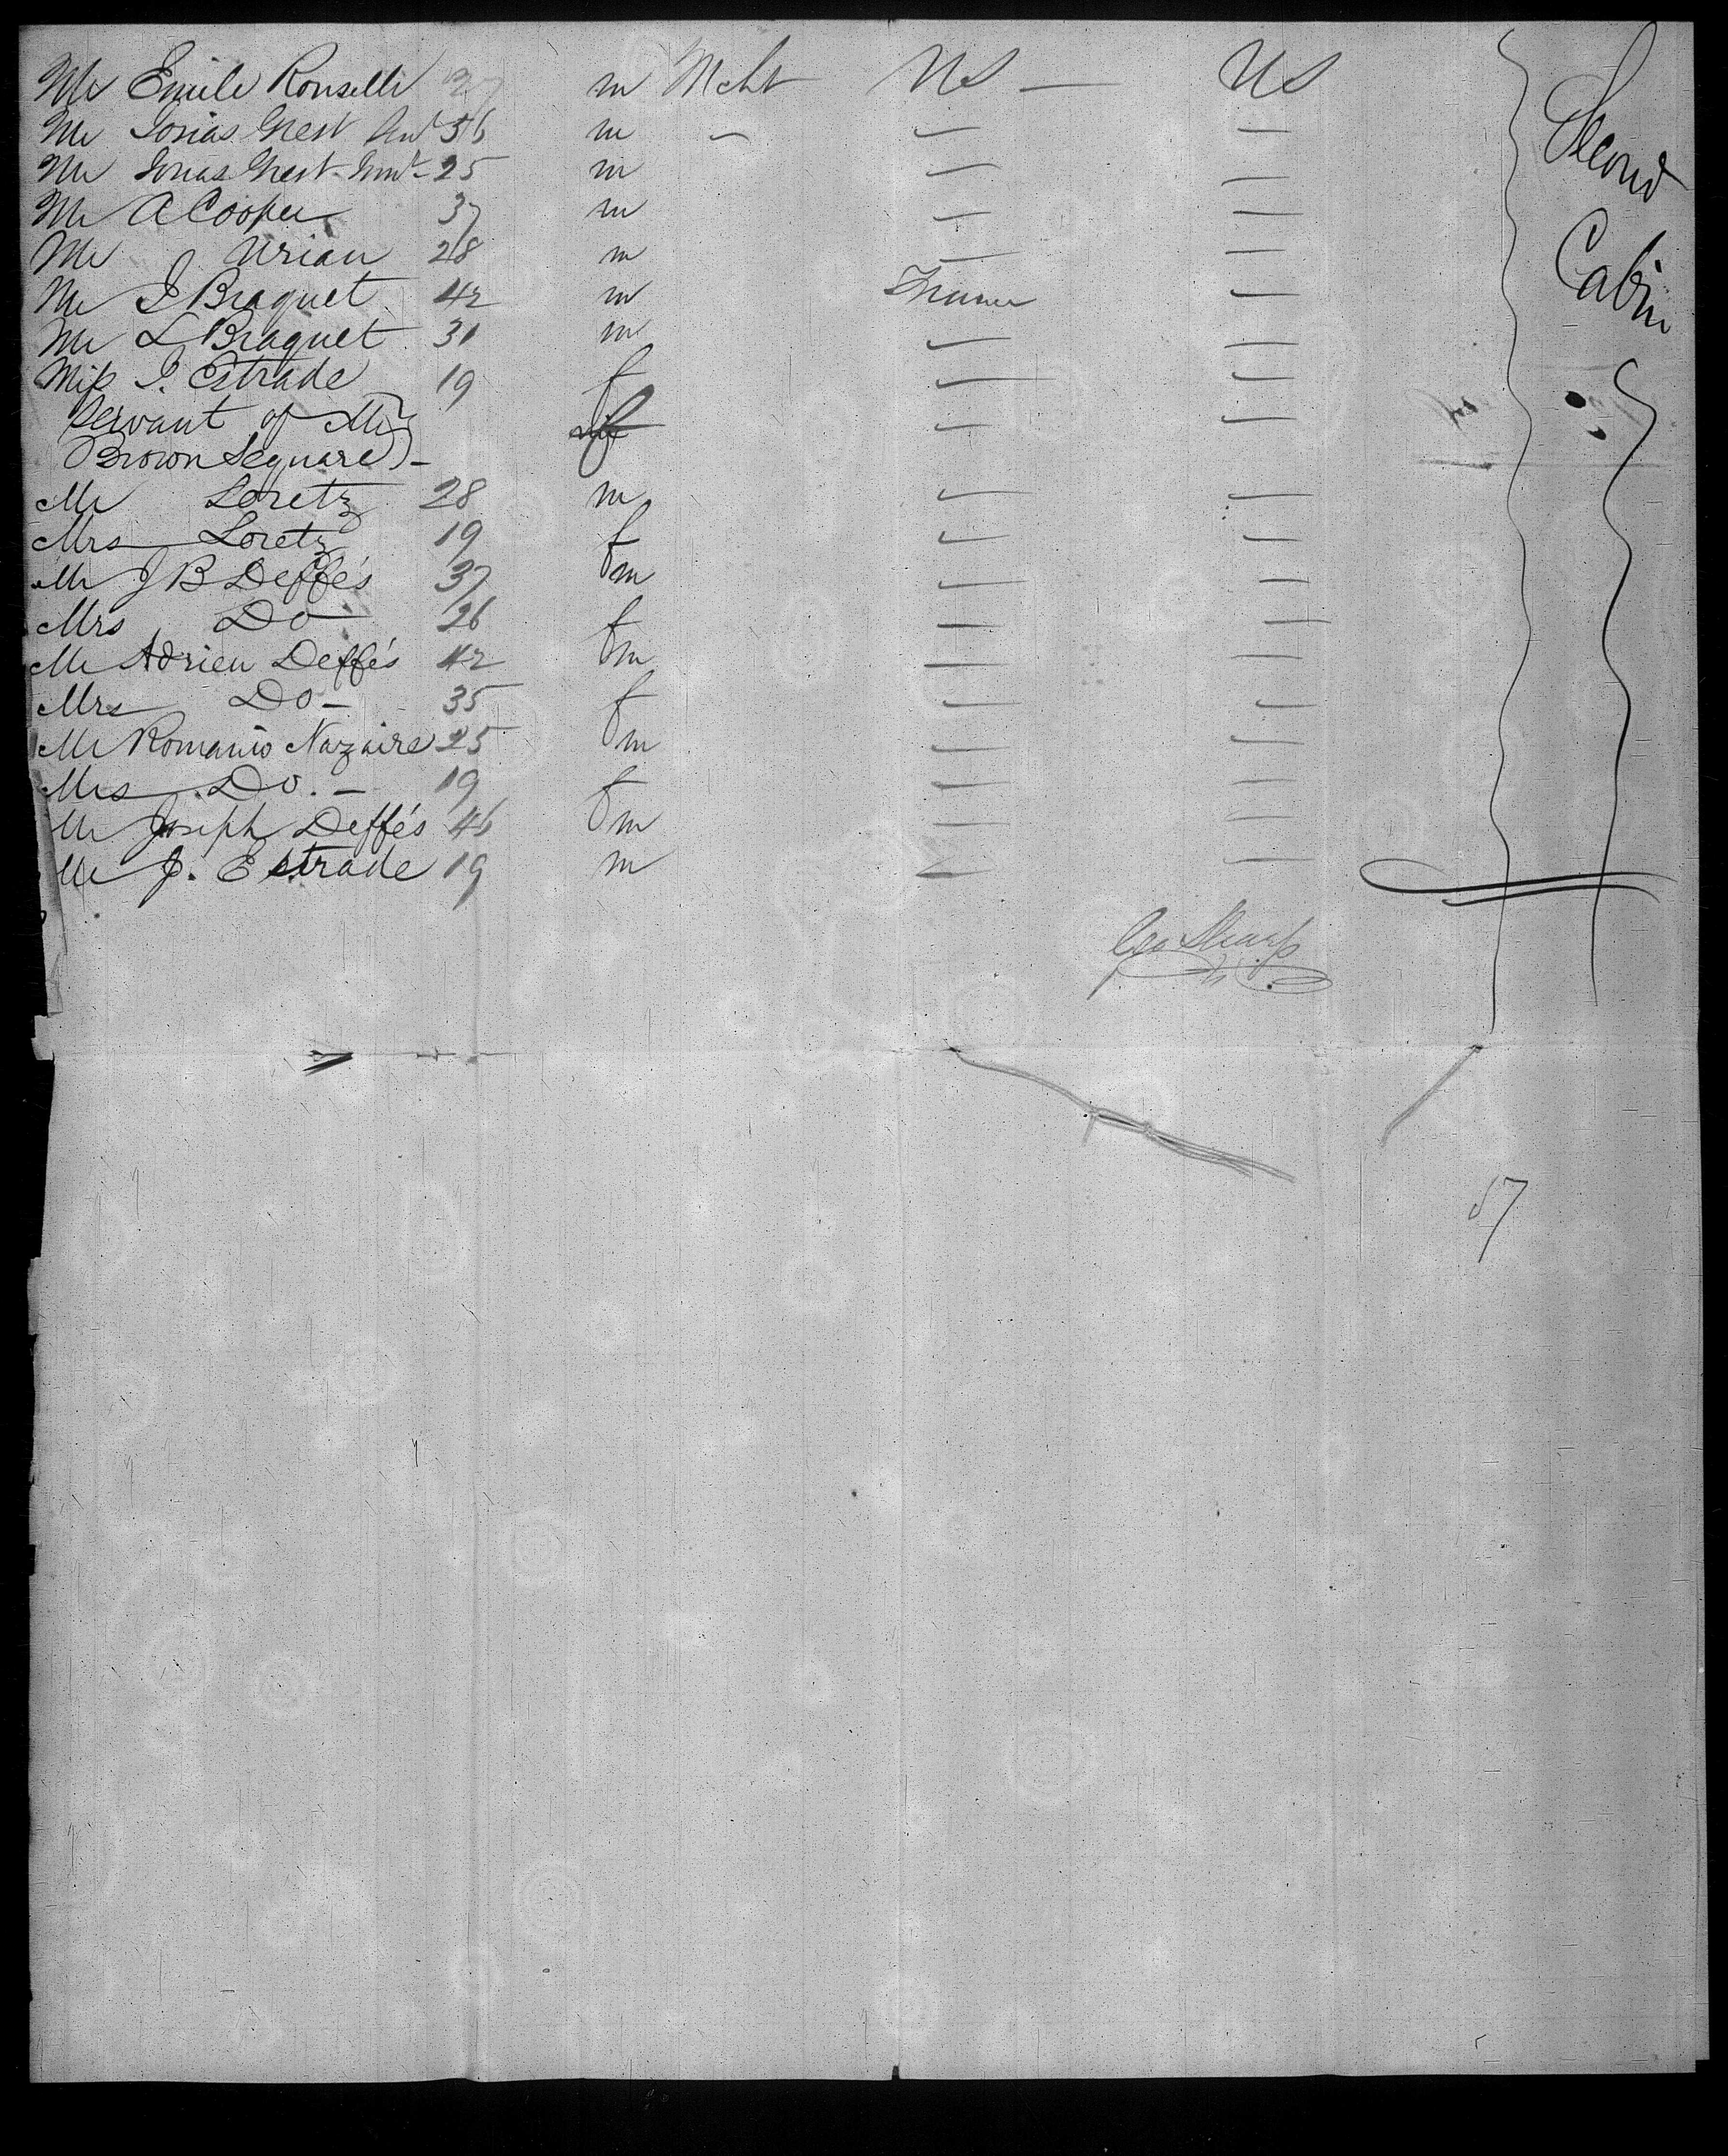 Mr Emile Rouselle 27 m Mcht US — US
Mr Josias Grest Sen 56 m — — —
Mr Josias Grest Jun 25 m — —
Mr A Cooper 37 m — —
Mr Urian 28 m — —
Mr J Braquet 42 m France —
Mr L Braquet 31 m — —
Miss J. Estrade 19 f — —
Servant of Mr f — —
Brown Sequard -
Mr Loretz 28 m — —
Mrs Loretz 19 f — —
Mr J B Deffés 37 m — —
Mrs Do 26 f — —
Mr Adrien Deffés 42 m — —
Mrs Do - 35 f — —
Mr Romanio Nazaire 25 m — —
Mrs Do. - 19 f — —
Mr Joseph Deffés 46 m — —
Mr J. Estrade 19 m — —
Second
Cabin
Geo Sharp
57